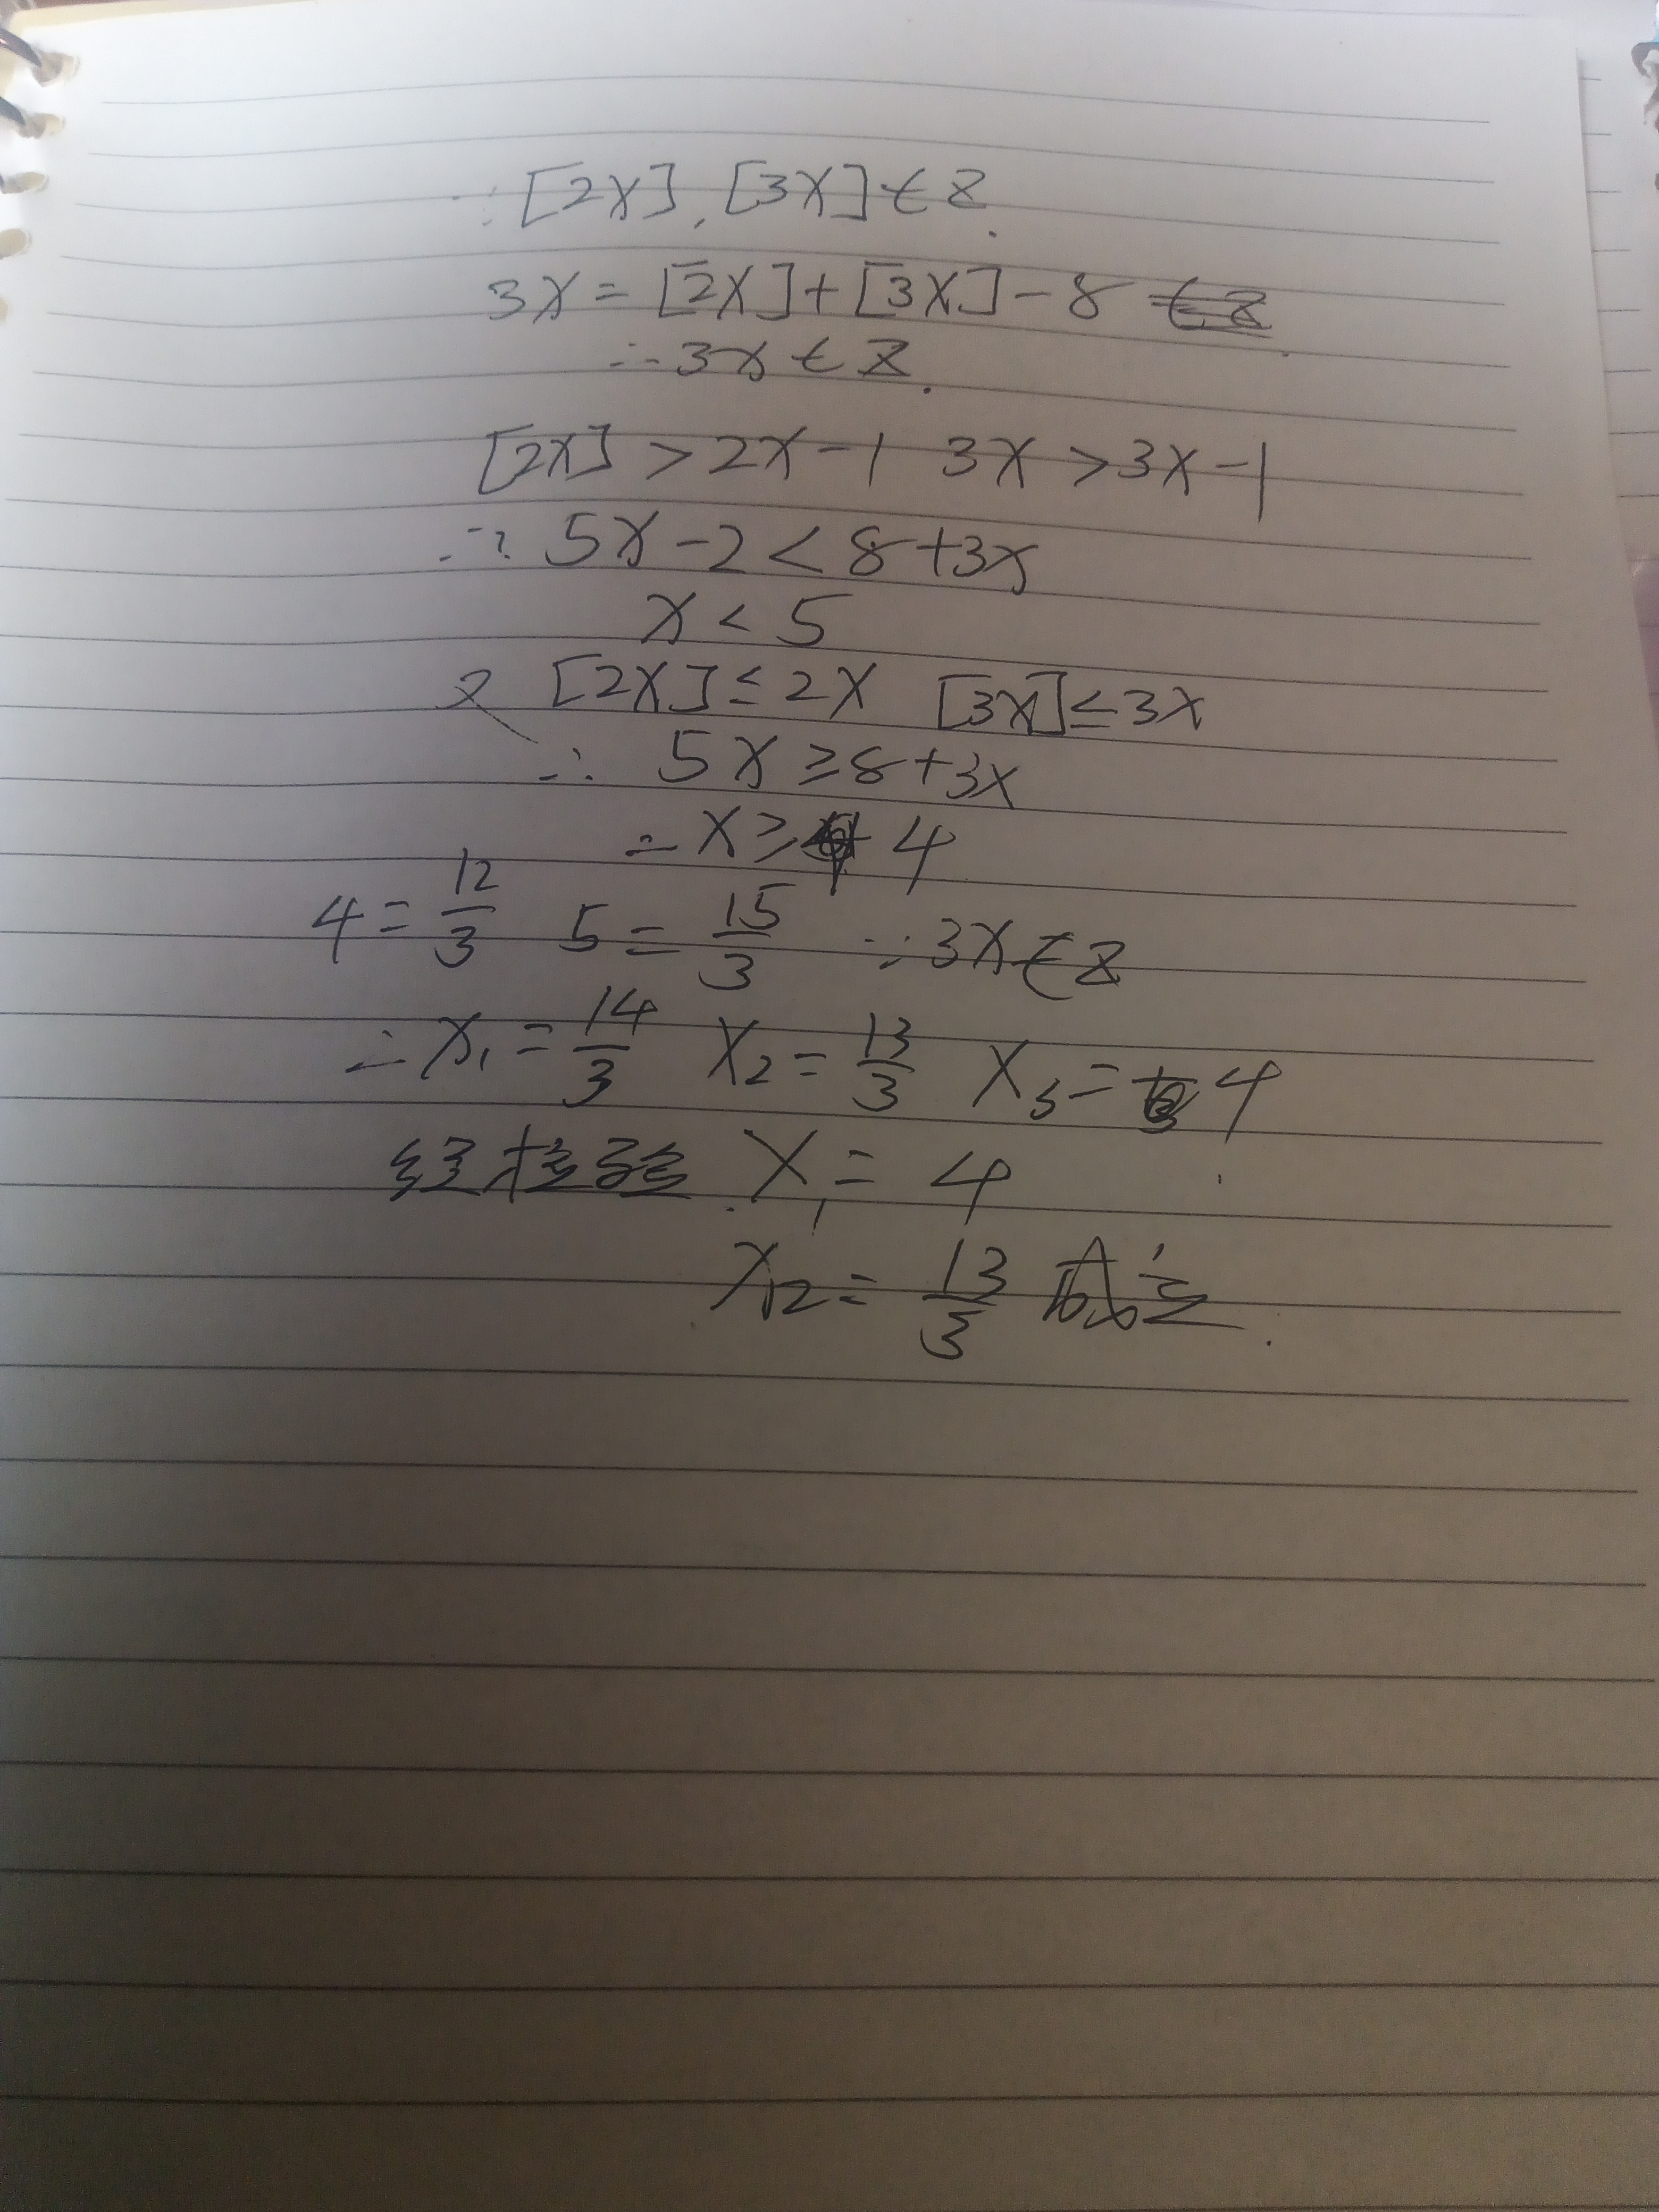 ∵ [2x], [3x] ∈ Z.
3x = [2x] + [3x] - 8
∴ 3x ∈ Z.
[2x] > 2x - 1 3x > 3x - 1
∴ 5x - 2 < 8 + 3x
x < 5
又 [2x] ≤ 2x [3x] ≤ 3x
∴ 5x ≥ 8 + 3x
∴ x ≥ 4
4 = 12/3 5 = 15/3 ∵ 3x ∈ Z
∴ x₁ = 14/3 x₂ = 13/3 x₃ = 4
经检验 x₁ = 4
x₂ = 13/3 成立.